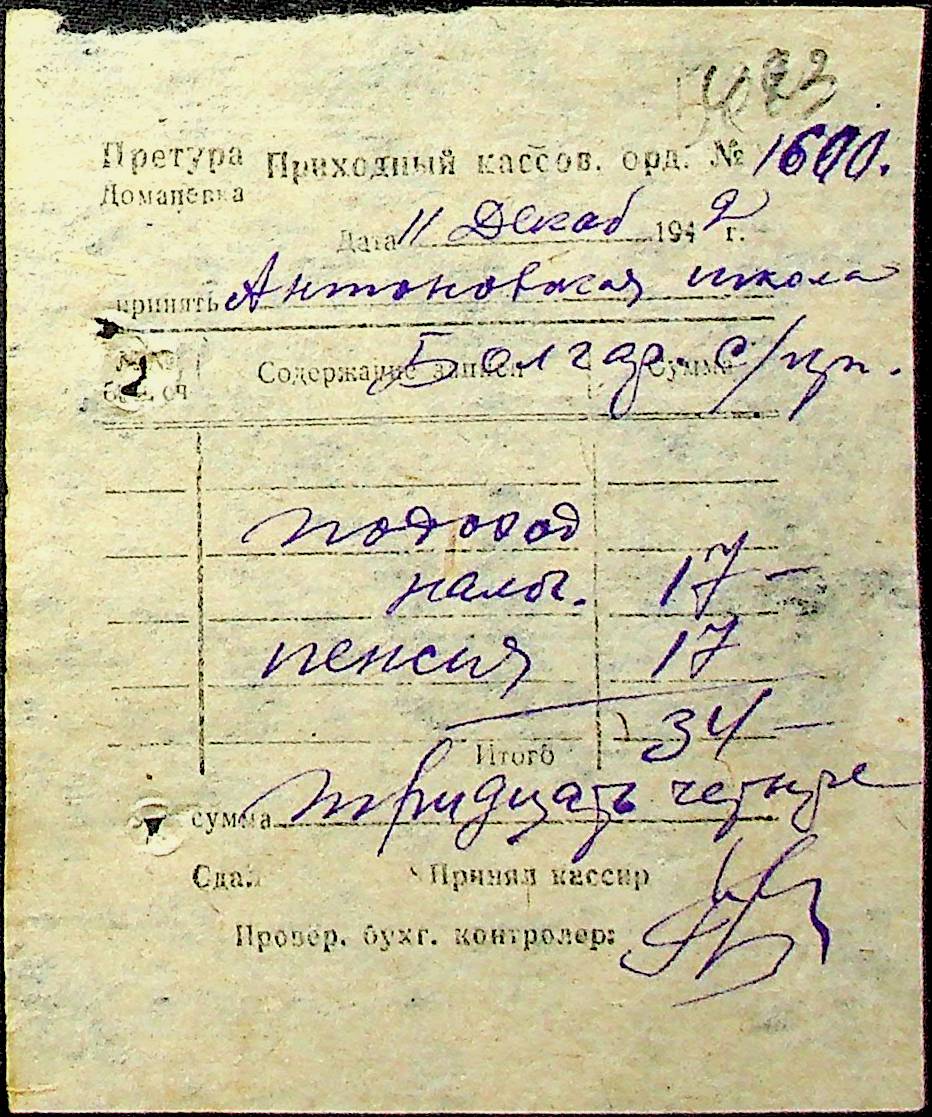 Претура Приходный кассов. орд. № 1600.
Доманевка
Дата 11 Декаб 1942 г.
принять Антоновская школа
Болгар. с/пр.
№№ Содержание записи Сумма
подоход
налог. 17 —
пенсия 17
Итого 34 —
сумма тридцать четыре
Сдал Принял кассир
Провер. бухг. контролер: